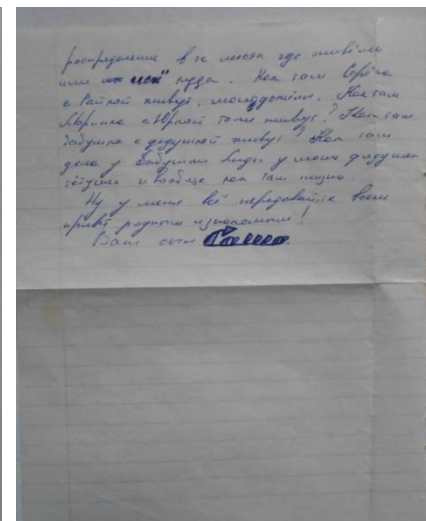 распределения в те места где живёте
или нужен. Как там Серёга
с Райкой живут, молодожёны. Как там
Маринка с Юркой тоже живут? Как там
бабушка с дедушкой живут? Как там
дела у бабушки Лиды у моих дядушек
тётушек и вообще как там жизнь.
Ну у меня всё передавайте всем
привет родным и знакомым!
Ваш сын